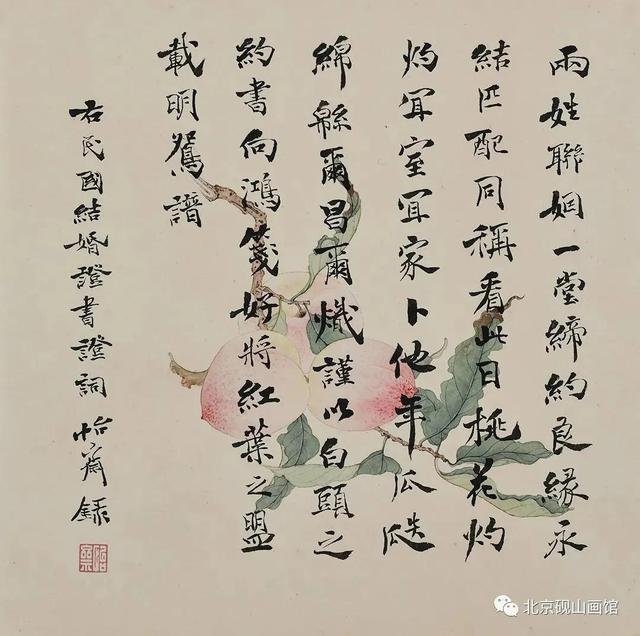 兩姓聯姻一堂締約良緣永
結匹配同稱看此日桃花灼
灼宜室宜家卜他年瓜瓞
綿緜爾昌爾熾謹以白頭之
約書向鴻箋好將紅葉之盟
載明鴛譜
右民國結婚證書證詞怡齋錄
北京砚山画馆